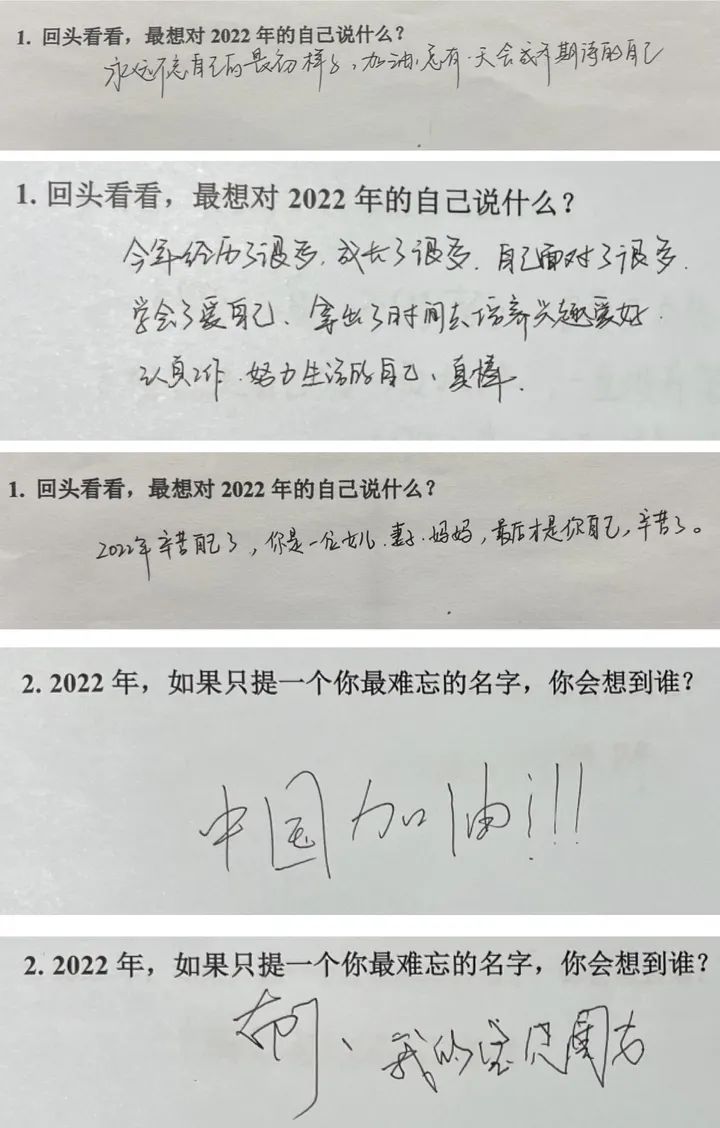 1. 回头看看，最想对 2022 年的自己说什么？
永远不忘自己的最初样子，加油，总有一天会成为期待的自己
1. 回头看看，最想对 2022 年的自己说什么？
今年经历了很多，成长了很多，自己面对了很多，
学会了爱自己、拿出了时间去培养兴趣爱好，
认真工作，努力生活的自己、真棒。
1. 回头看看，最想对 2022 年的自己说什么？
2022年辛苦自己了，你是一位女儿、妻子、妈妈，最后才是你自己，辛苦了。
2. 2022 年，如果只提一个你最难忘的名字，你会想到谁？
中国加油!!!
2. 2022 年，如果只提一个你最难忘的名字，你会想到谁？
、我的宝贝周